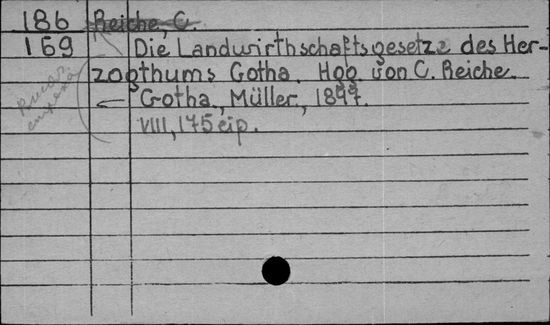 186 Reiche, C.
169 Die Landwirthschaftsgesetze des Her-
zogthums Gotha. Hgg von C. Reiche.
← Gotha, Müller, 1897.
VIII, 175